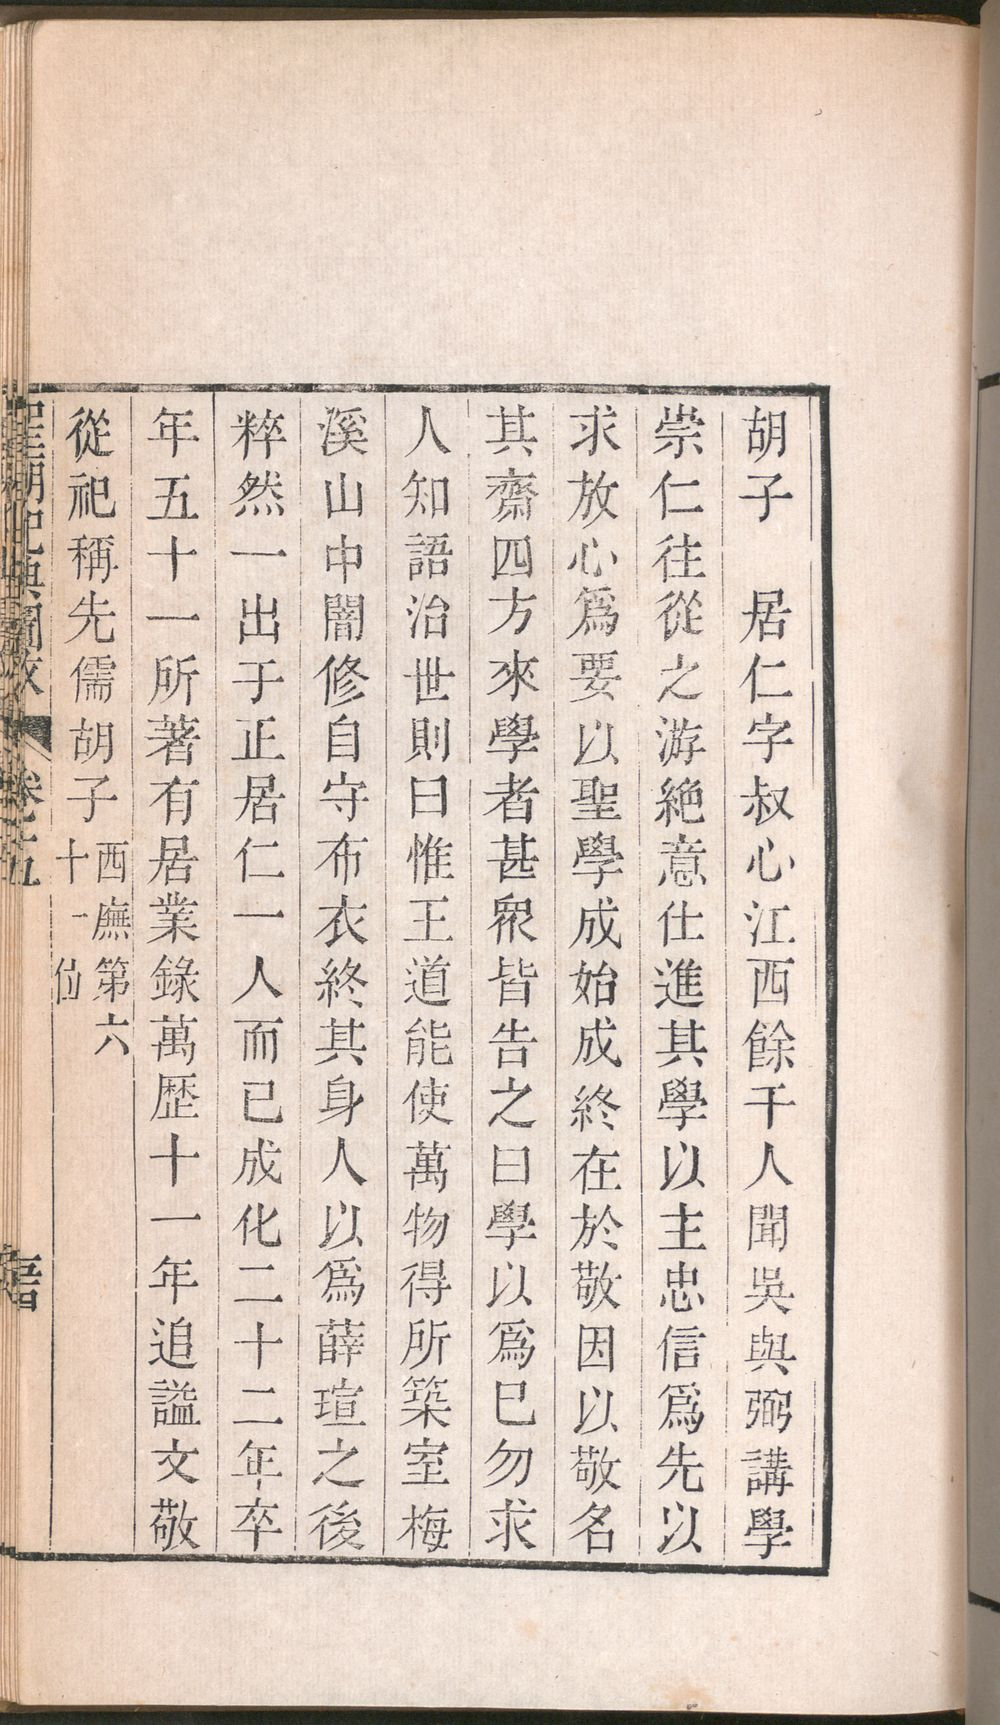 胡子　居仁字叔心江西餘干人聞吳與弼講學
崇仁往從之游絶意仕進其學以主忠信爲先以
求放心爲要以聖學成始成終在於敬因以敬名
其齋四方來學者甚衆皆告之曰學以爲已勿求
人知語治世則曰惟王道能使萬物得所築室梅
溪山中闇修自守布衣終其身人以爲薛瑄之後
粹然一出于正居仁一人而已成化二十二年卒
年五十一所著有居業錄萬歷十一年追謚文敬
從祀稱先儒胡子
西廡第六
十一位
聖朝祀典圖攷
卷之五